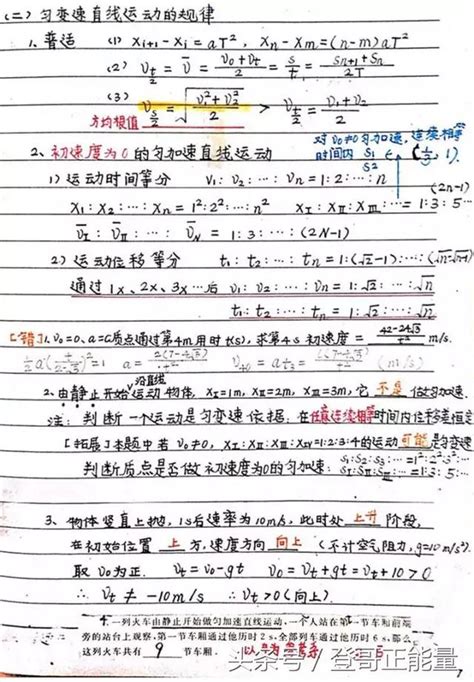 (二) 匀变速直线运动的规律
1. 普适 (1) xᵢ₊₁ - xᵢ = aT², xₙ - xₘ = (n-m)aT²
(2) v_{t/2} = v̄ = (v₀+vt)/2 = s/t = (Sn+1 + Sn)/2T
(3) v_{s/2} = √((v₁²+v₂²)/2) > v_{t/2} = (v₁+v₂)/2
方均根值
对v₀≠0匀加速,连续相等
时间内 S₁/S₂ ∈ (1/3, 1).
2、初速度为0的匀加速直线运动
1) 运动时间等分 v₁:v₂:…:vₙ = 1:2:…:n
(2n-1)
x₁:x₂:…xₙ = 1²:2²:…n² xⅠ:xⅡ:xⅢ…= 1:3:5…
v̄Ⅰ:v̄Ⅱ…:v̄N = 1:3:…:(2N-1)
2) 运动位移等分 t₁:t₂:…:tn = 1:(√2-1):…:(√n-√n-1)
通过1x、2x、3x…后 v₁:v₂:…= 1:√2:…:√n
t₁:t₂:…tn = 1:√2:…:√n
[错]1. v₀=0、a=C质点通过第4m用时t(s),求第4s初速度 = m/s.
(m/s)
沿直线
2.由静止开始运动物体,xⅠ=1m,xⅡ=2m,xⅢ=3m,它不是做匀加速.
注:判断一运动是匀变速依据:在任意连续相等时间内位移差恒定
[拓展]本题中若v₀≠0,xⅠ:xⅡ:xⅢ:xⅣ=1:2:3:4的运动可能是匀变速
判断质点是否做初速度为0的匀加速:S₁:S₂:S₃:…=1²:2²:3²:…
SⅠ:SⅡ:SⅢ:…=1:3:5:…
3、物体竖直上抛,1s后速率为10m/s,此时处上升阶段,
在初始位置上方,速度方向向上 (不计空气阻力,g=10m/s²).
取v₀为正. vt=v₀-gt v₀=vt+gt=vt+10>0
vt≠-10m/s ∴vt>0(向上).
4.一列火车由静止开始做匀加速直线运动,一个人站在第1节车厢前端
旁的站台上观察,第一节车厢通过他历时2s,全部列车通过他历时6s,那么
这列火车共有9节车厢.
头条号 / 登哥正能量